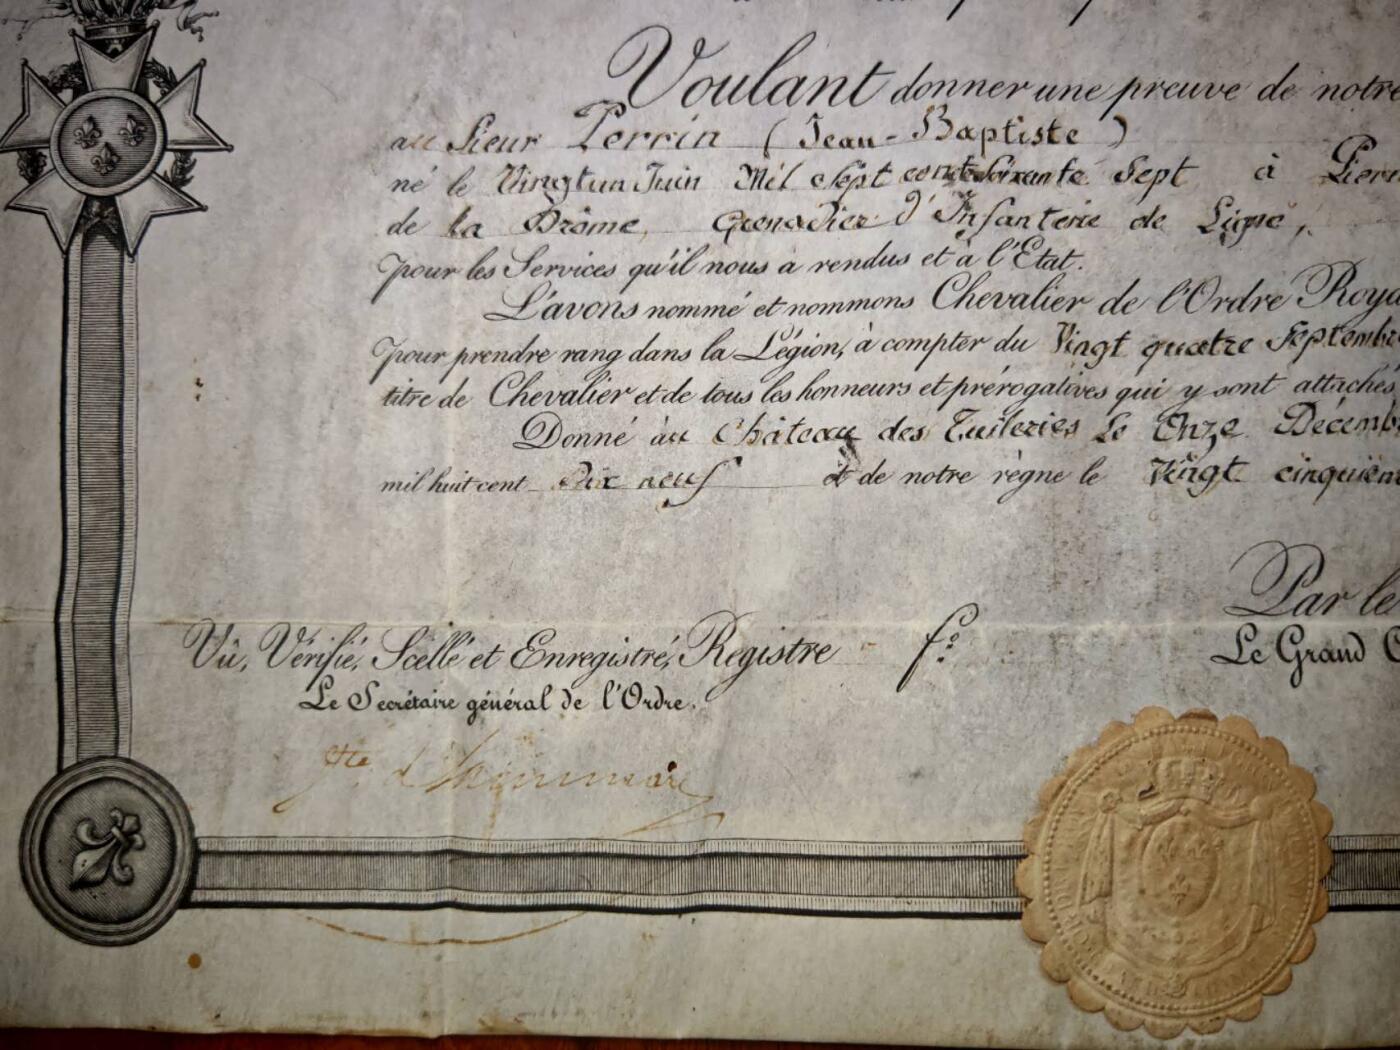 Voulant donner une preuve de notre
au Sieur Perrin (Jean-Baptiste)
né le Vingtun Juin Mil Sept cent Soixante Sept à Pierr
de la Drôme, Grenadier d'Infanterie de Ligne,
pour les Services qu'il nous a rendus et à l'Etat.
L'avons nommé et nommons Chevalier de l'Ordre Roya
pour prendre rang dans la Légion, à compter du Vingt quatre Septembr
titre de Chevalier et de tous les honneurs et prérogatives qui y sont attachés
Donné au Château des Tuileries Le Onze Décemb
mil huit cent Dix neuf et de notre règne le Vingt cinquièm
Par le
Vû, Vérifié, Scellé et Enregistré, Registre fº:
Le Grand C
Le Secrétaire général de l'Ordre.